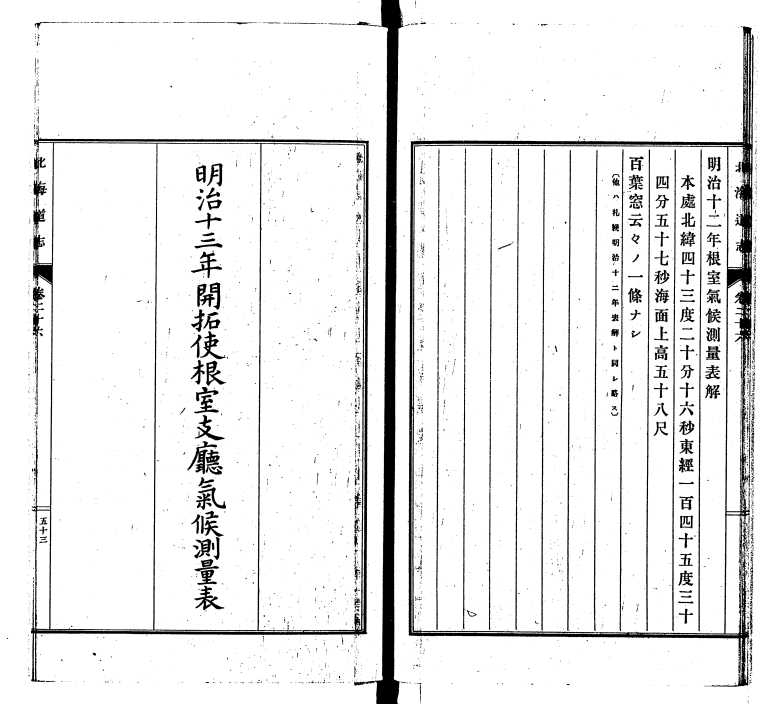 北海道志
卷二十六
明治十二年根室氣候測量表解
本處北緯四十三度二十分十六秒東經一百四十五度三十
四分五十七秒海面上高五十八尺
百葉窓云々ノ一條ナシ
（他ハ札幌明治十二年表解ト同シ略ス）
明治十三年開拓使根室支廳氣候測量表
北海道志
卷二十六
五十三